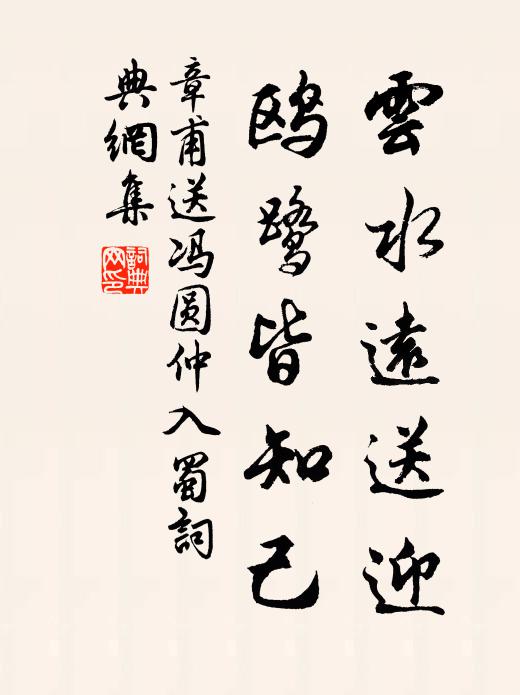 雲水遠送迎
鸥鹭皆知己
章甫送冯圆仲入蜀詞
典網集
詞典网印